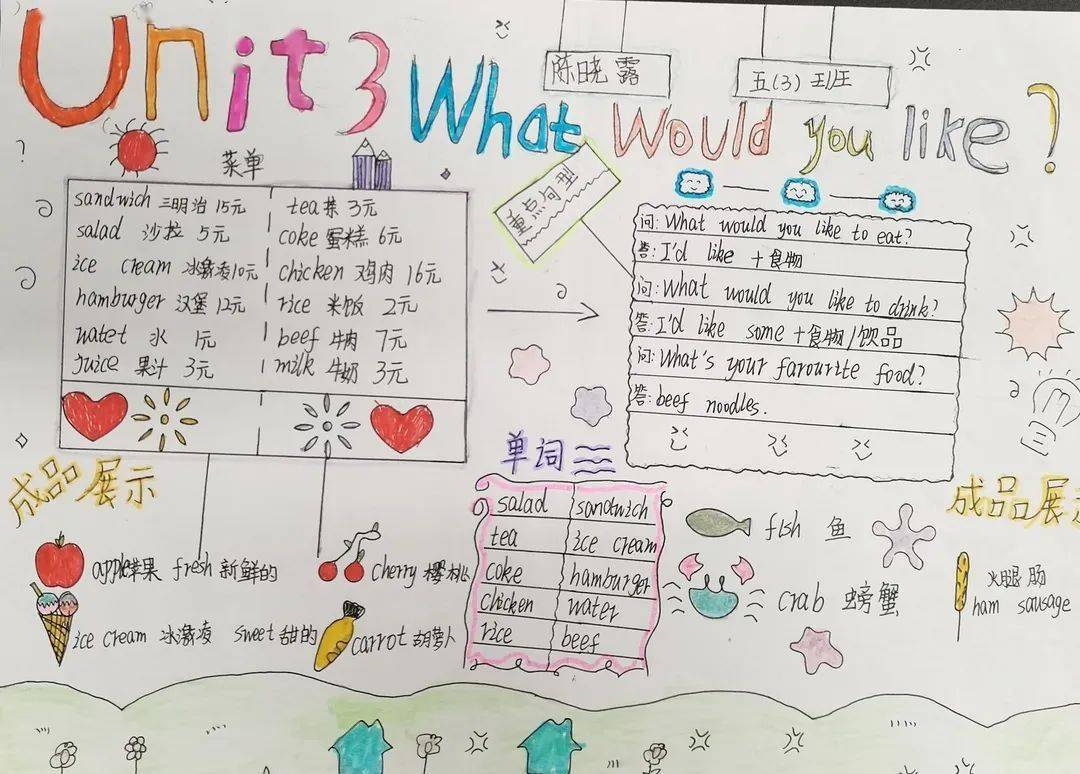 Unit 3 What Would you like?
陈晓露
五(3)班
菜单
sandwich 三明治 15元
salad 沙拉 5元
ice cream 冰激凌10元
hamburger 汉堡 12元
watet 水 1元
juice 果汁 3元
tea茶 3元
coke 蛋糕 6元
chicken 鸡肉 16元
rice 米饭 2元
beef 牛肉 7元
milk 牛奶 3元
重点句型
问: What would you like to eat?
答: I'd like +食物
问: What would you like to drink?
答: I'd like some +食物/饮品
问: What's your farourite food?
答: beef noodles.
成品展示
apple苹果 fresh 新鲜的
cherry 樱桃
ice cream 冰激凌 sweet 甜的
carrot 胡萝卜
单词
salad sandwich
tea ice cream
coke hamburger
chicken water
rice beef
fish 鱼
crab 螃蟹
成品展示
火腿肠
ham sausage